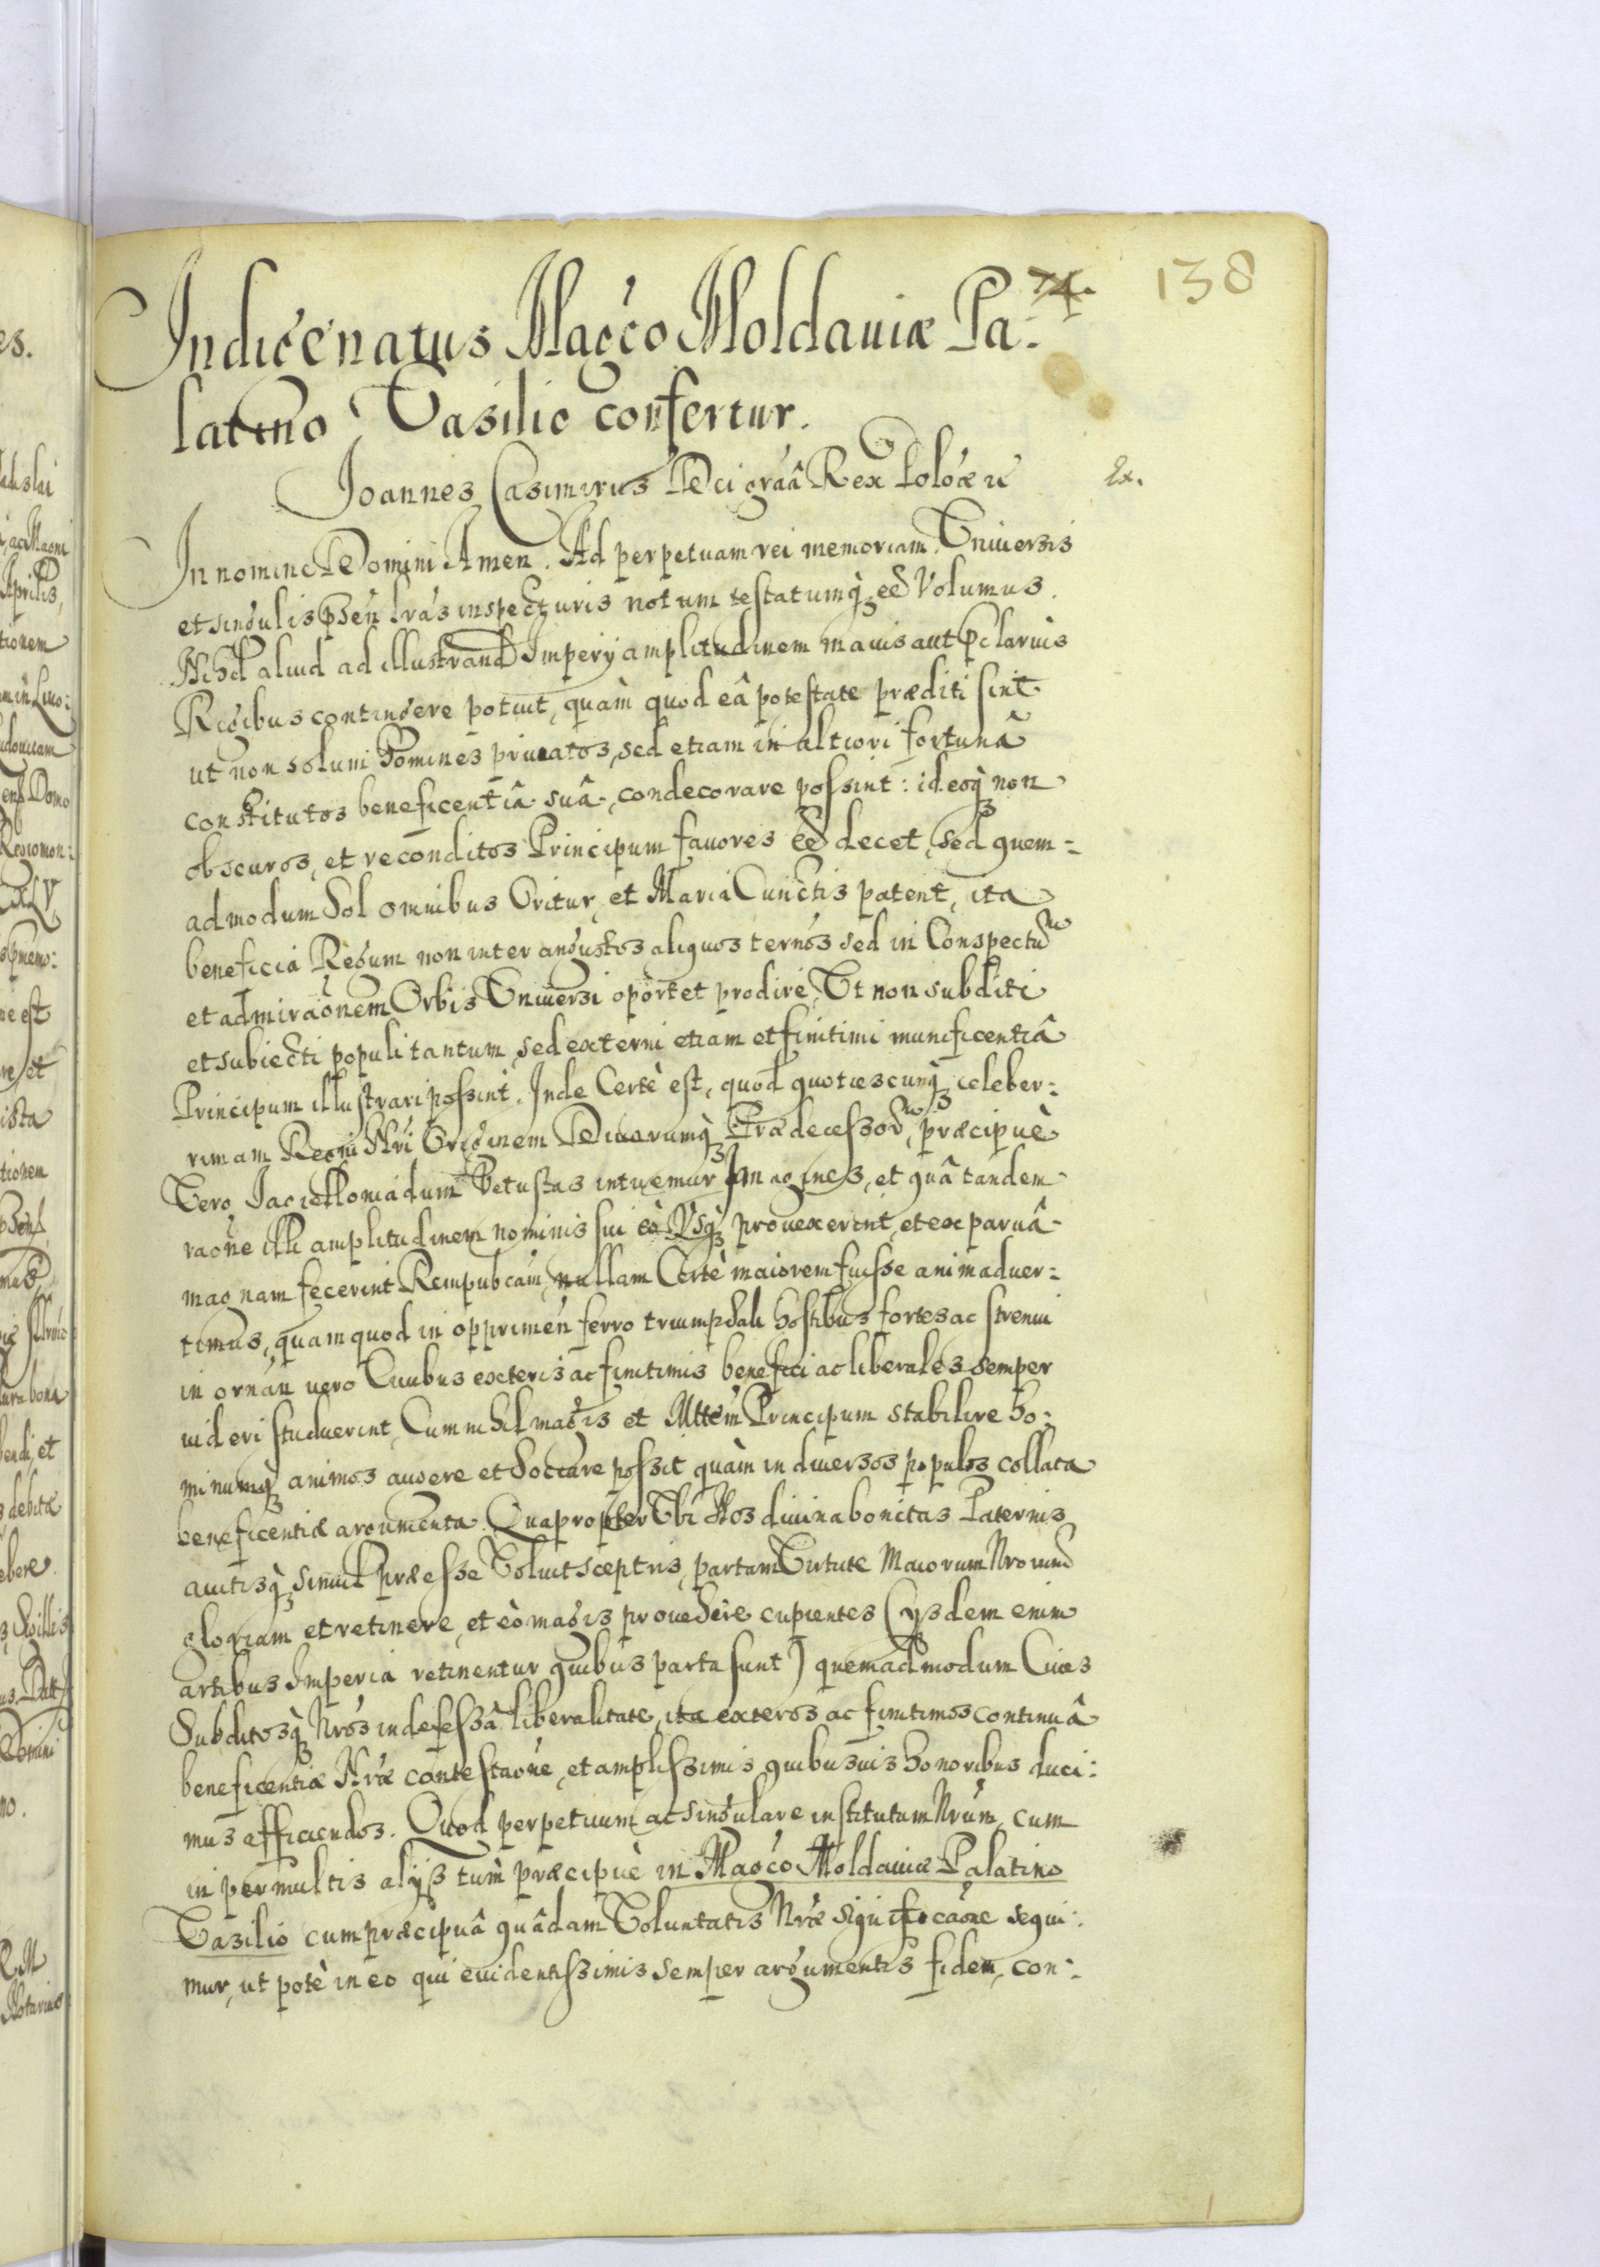 74. 138
Indigenatus Magco Moldaviæ Pa:
latino Vasilio confertur.
Joannes Casimirus Dei grãa Rex Poloæ
Ex.
In nomine Domini Amen. Ad perpetuam rei memoriam. Universis
et singulis pñsen lrãs inspecturis notum testatumq̃ eẽ Volumus.
Nihil aliud ad illustrand Imperij amplitudinem maius aut pclarius
Regibus contingere potuit, quàm quod eâ potestate præditi sint
ut non solum Homines priuatos, sed etiam in altiori fortunâ
constitutos beneficentiâ suâ, condecorare possint: ideoq̃ non
obscuros, et reconditos Principum fauores eẽ decet, sed quem:
admodum Sol omnibus Oritur, et Maria Cunctis patent, ita
beneficia Regum non inter angustos aliquos ternos sed in Conspectu
et admiraõnem Orbis Vniuersi oportet prodire, Vt non subditi
et subiecti populi tantum, sed externi etiam et finitimi munificentiâ
Principum illustrari possint. Inde Certè est, quod quotiescunq̃ celeber:
rimam Regni Nri Originem Diuorumq̃ Prædecessor, præcipuè
Vero Jagiellonidum Vetustas intuemur Imagines, et quâ tandem
raõne illi amplitudinem nominis sui eò Vsq̃ prouexerint, et ex paruâ
magnam fecerint Rempubcam, nullam Certè maiorem fuisse animaduer:
timus, quam quod in opprimen ferro triumphali hostibus fortes ac strenui
in ornan uero Ciuibus exteris ac finitimis benefici ac liberales semper
uideri studuerint, Cum nihil magis et Mttem Principum stabilire ho:
minumq̃ animos augere et Sociare possit quàm in diuersos populos collata
beneficentiæ argumenta. Quapropter Vbi Nos diuina bonitas Paternis
auitisq̃ simul præesse Voluit sceptris, partam Virtute Maiorum Nrorum
gloriam et retinere, et eò magis prouehere cupientes (ijsdem enim
artibus Imperia retinentur quibus parta sunt) quemadmodum Ciues
Subditosq̃ Nros indefessâ liberalitate, ita exteros ac finitimos continuâ
beneficentiæ Nræ contestaõne, et amplissimis quibusuis honoribus duci:
mus afficiendos. Quod perpetuum ac singulare institutum Nrum, cum
in permultis alijs tùm præcipuè in Magco Moldauiæ Palatino
Vasilio cum præcipuâ quâdam Voluntatis Nræ significaõne sequi:
mur, ut potè in eo qui euidentissimis semper argumentis fidem, con: